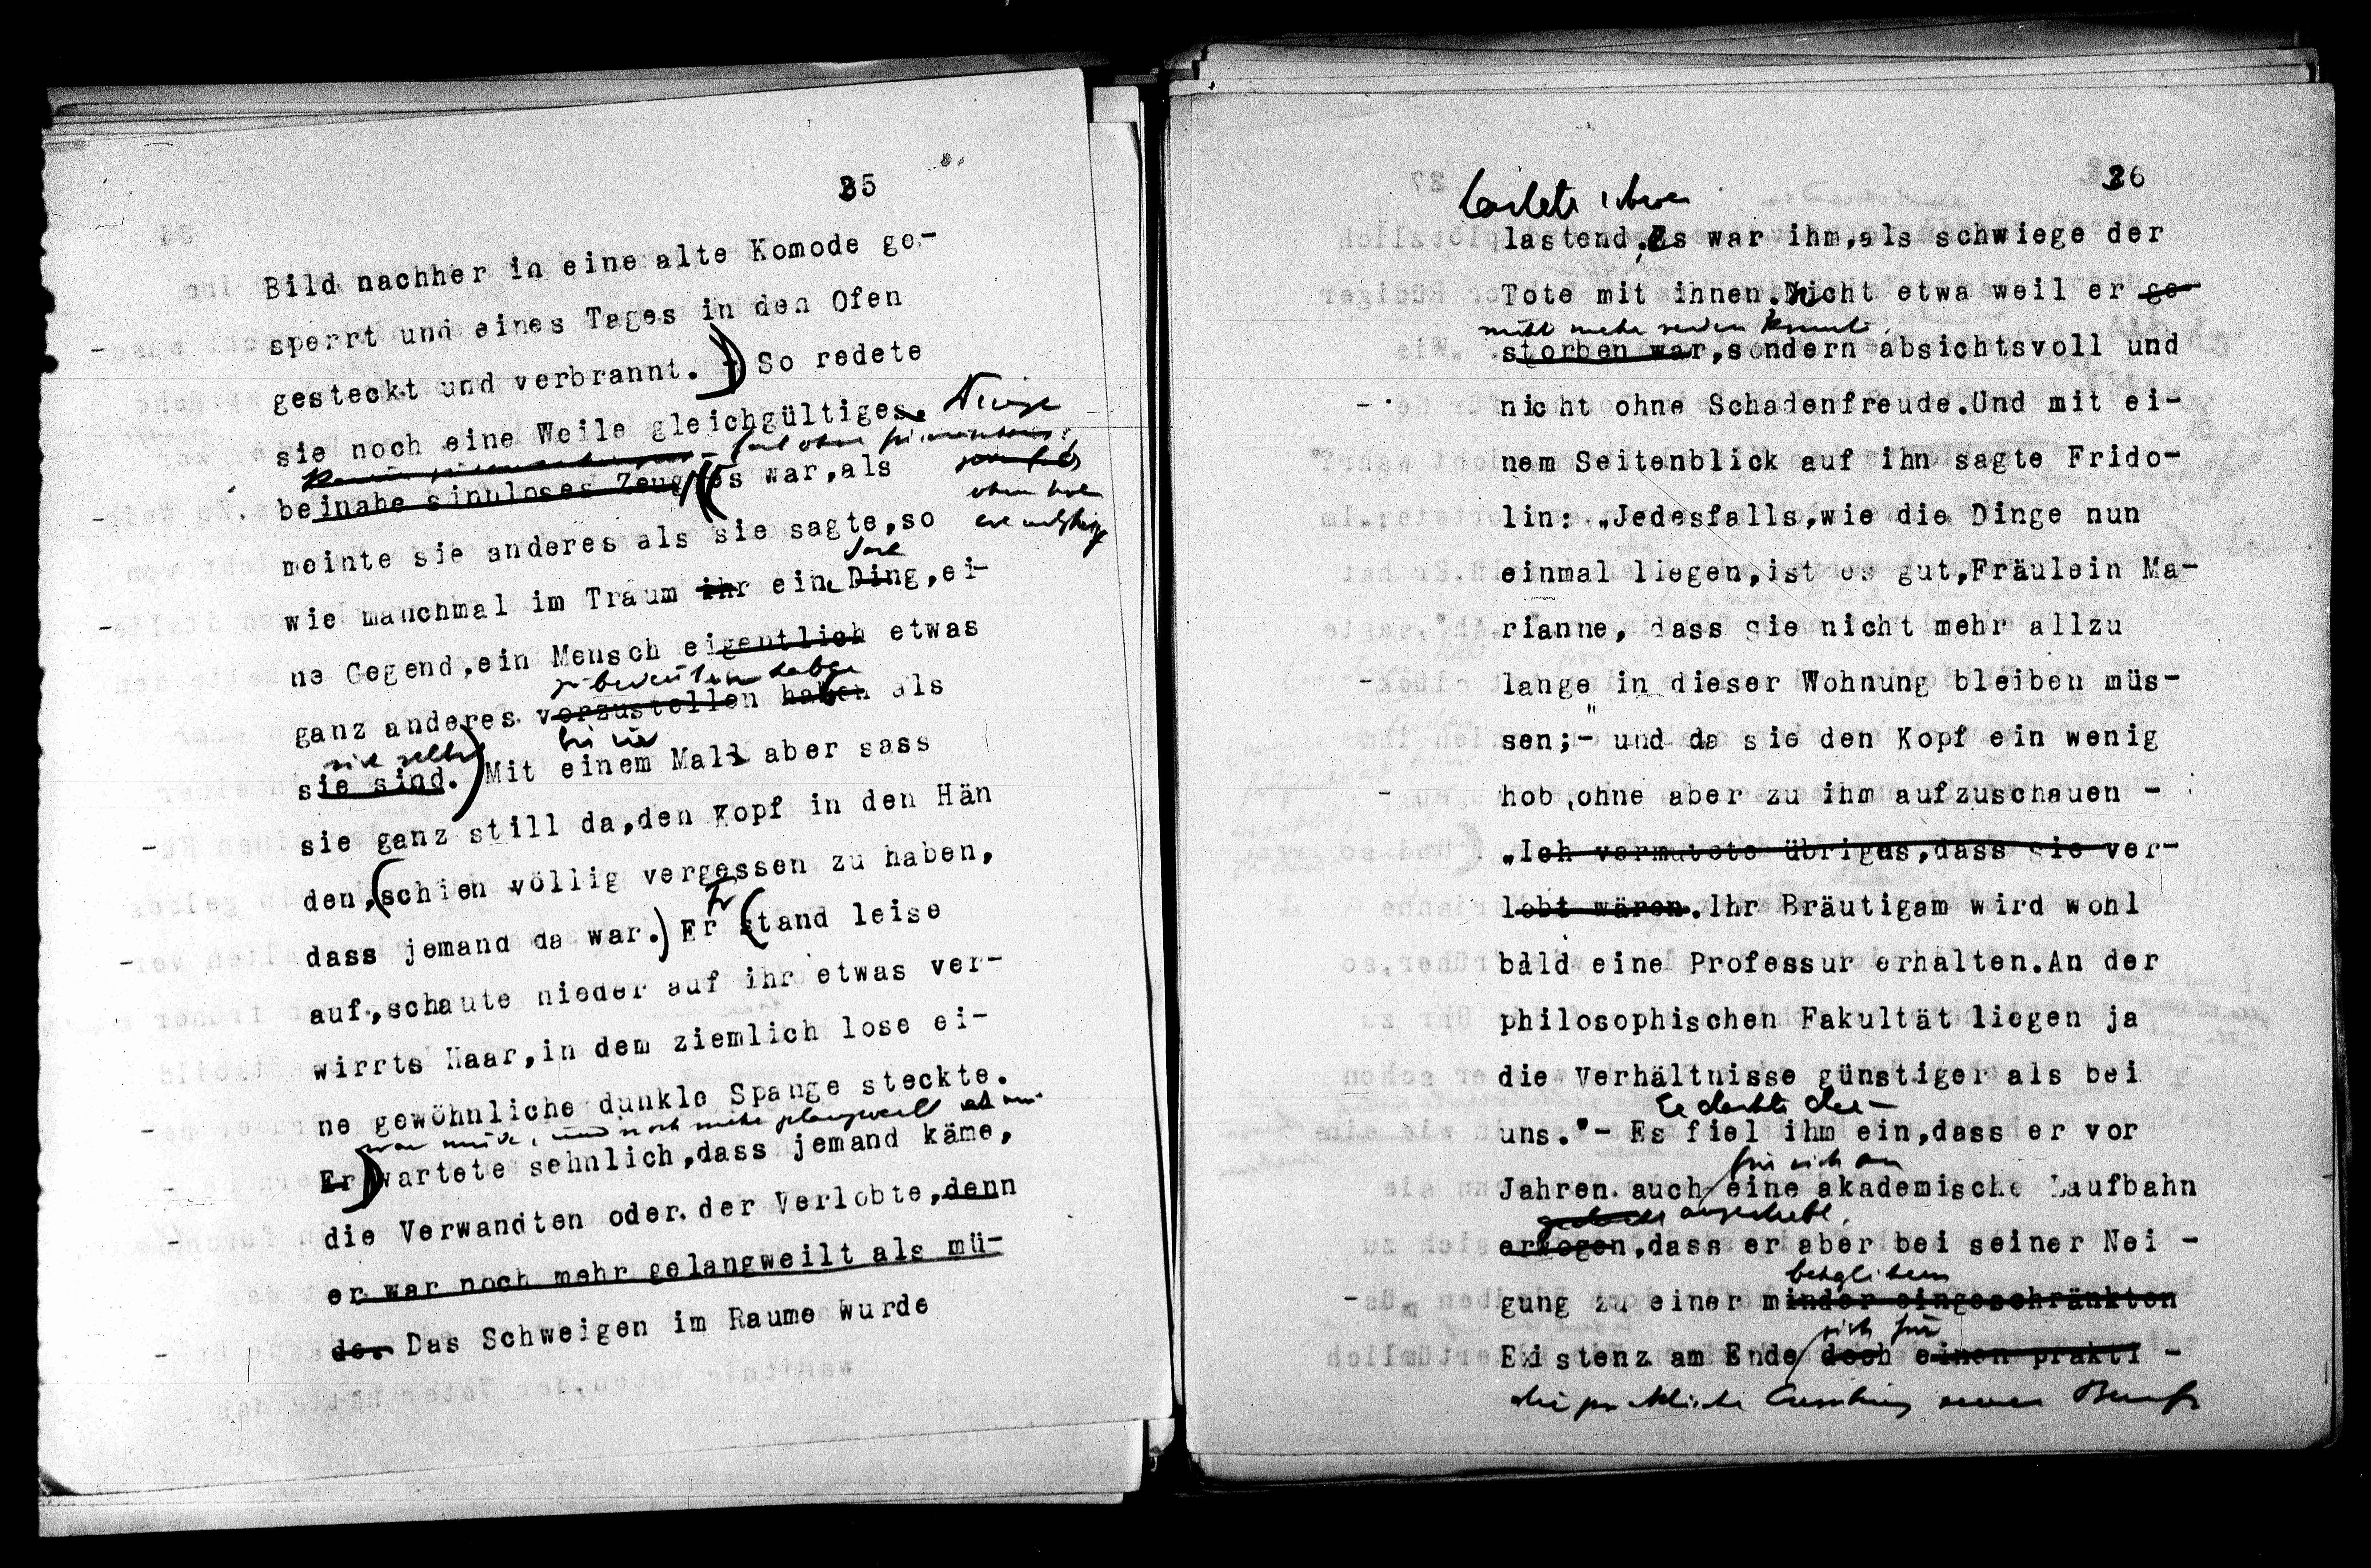 35
Bild nachher in eine alte Komode ge-
sperrt und eines Tages in den Ofen
gesteckt und verbrannt.) So redete
sie noch eine Weile gleichgültiges. Dinge
fast ohne
beinahe sinnloses Zeug (es war, als
meinte sie anderes als sie sagte, so
wie manchmal im Traum ihr ein Ding, ei-
ne Gegend, ein Mensch eigentlich etwas
zu bedeuten habe
ganz anderes vorzustellen haben als
sie selbst
sie sind.) Mit einem Mall aber sass
sie ganz still da, den Kopf in den Hän
den, (schien völlig vergessen zu haben,
dass jemand da war.) Er (stand leise
auf, schaute nieder auf ihr etwas ver-
wirrts Haar, in dem ziemlich lose ei-
ne gewöhnliche dunkle Spange steckte.
war müde, und noch mehr gelangweilt
Er) wartete sehnlich, dass jemand käme,
die Verwandten oder der Verlobte, denn
er war noch mehr gelangweilt als mü-
de. Das Schweigen im Raume wurde
26
lastete schwer
lastend. Es war ihm, als schwiege der
Tote mit ihnen. Nicht etwa weil er ge-
nicht mehr reden konnte,
storben war, sondern absichtsvoll und
nicht ohne Schadenfreude. Und mit ei-
nem Seitenblick auf ihn sagte Frido-
lin: „Jedesfalls, wie die Dinge nun
einmal liegen, ist es gut, Fräulein Ma-
rianne, dass sie nicht mehr allzu
lange in dieser Wohnung bleiben müs-
sen;"- und da sie den Kopf ein wenig
hob, ohne aber zu ihm aufzuschauen -
„Ich vermutete übrigns, dass sie ver-
lobt wären. Ihr Bräutigam wird wohl
bald eine Professur erhalten. An der
philosophischen Fakultät liegen ja
die Verhältnisse günstiger als bei
Er dachte dar-
uns."- Es fiel ihm ein, dass er vor
für sich an
Jahren auch eine akademische Laufbahn
gedacht angestrebt,
erwogen, dass er aber bei seiner Nei -
behaglichern
gung zu einer minder eingeschränkten
sich für
Existenz am Ende doch einen prakti -
die praktische Ausübung seines Berufs